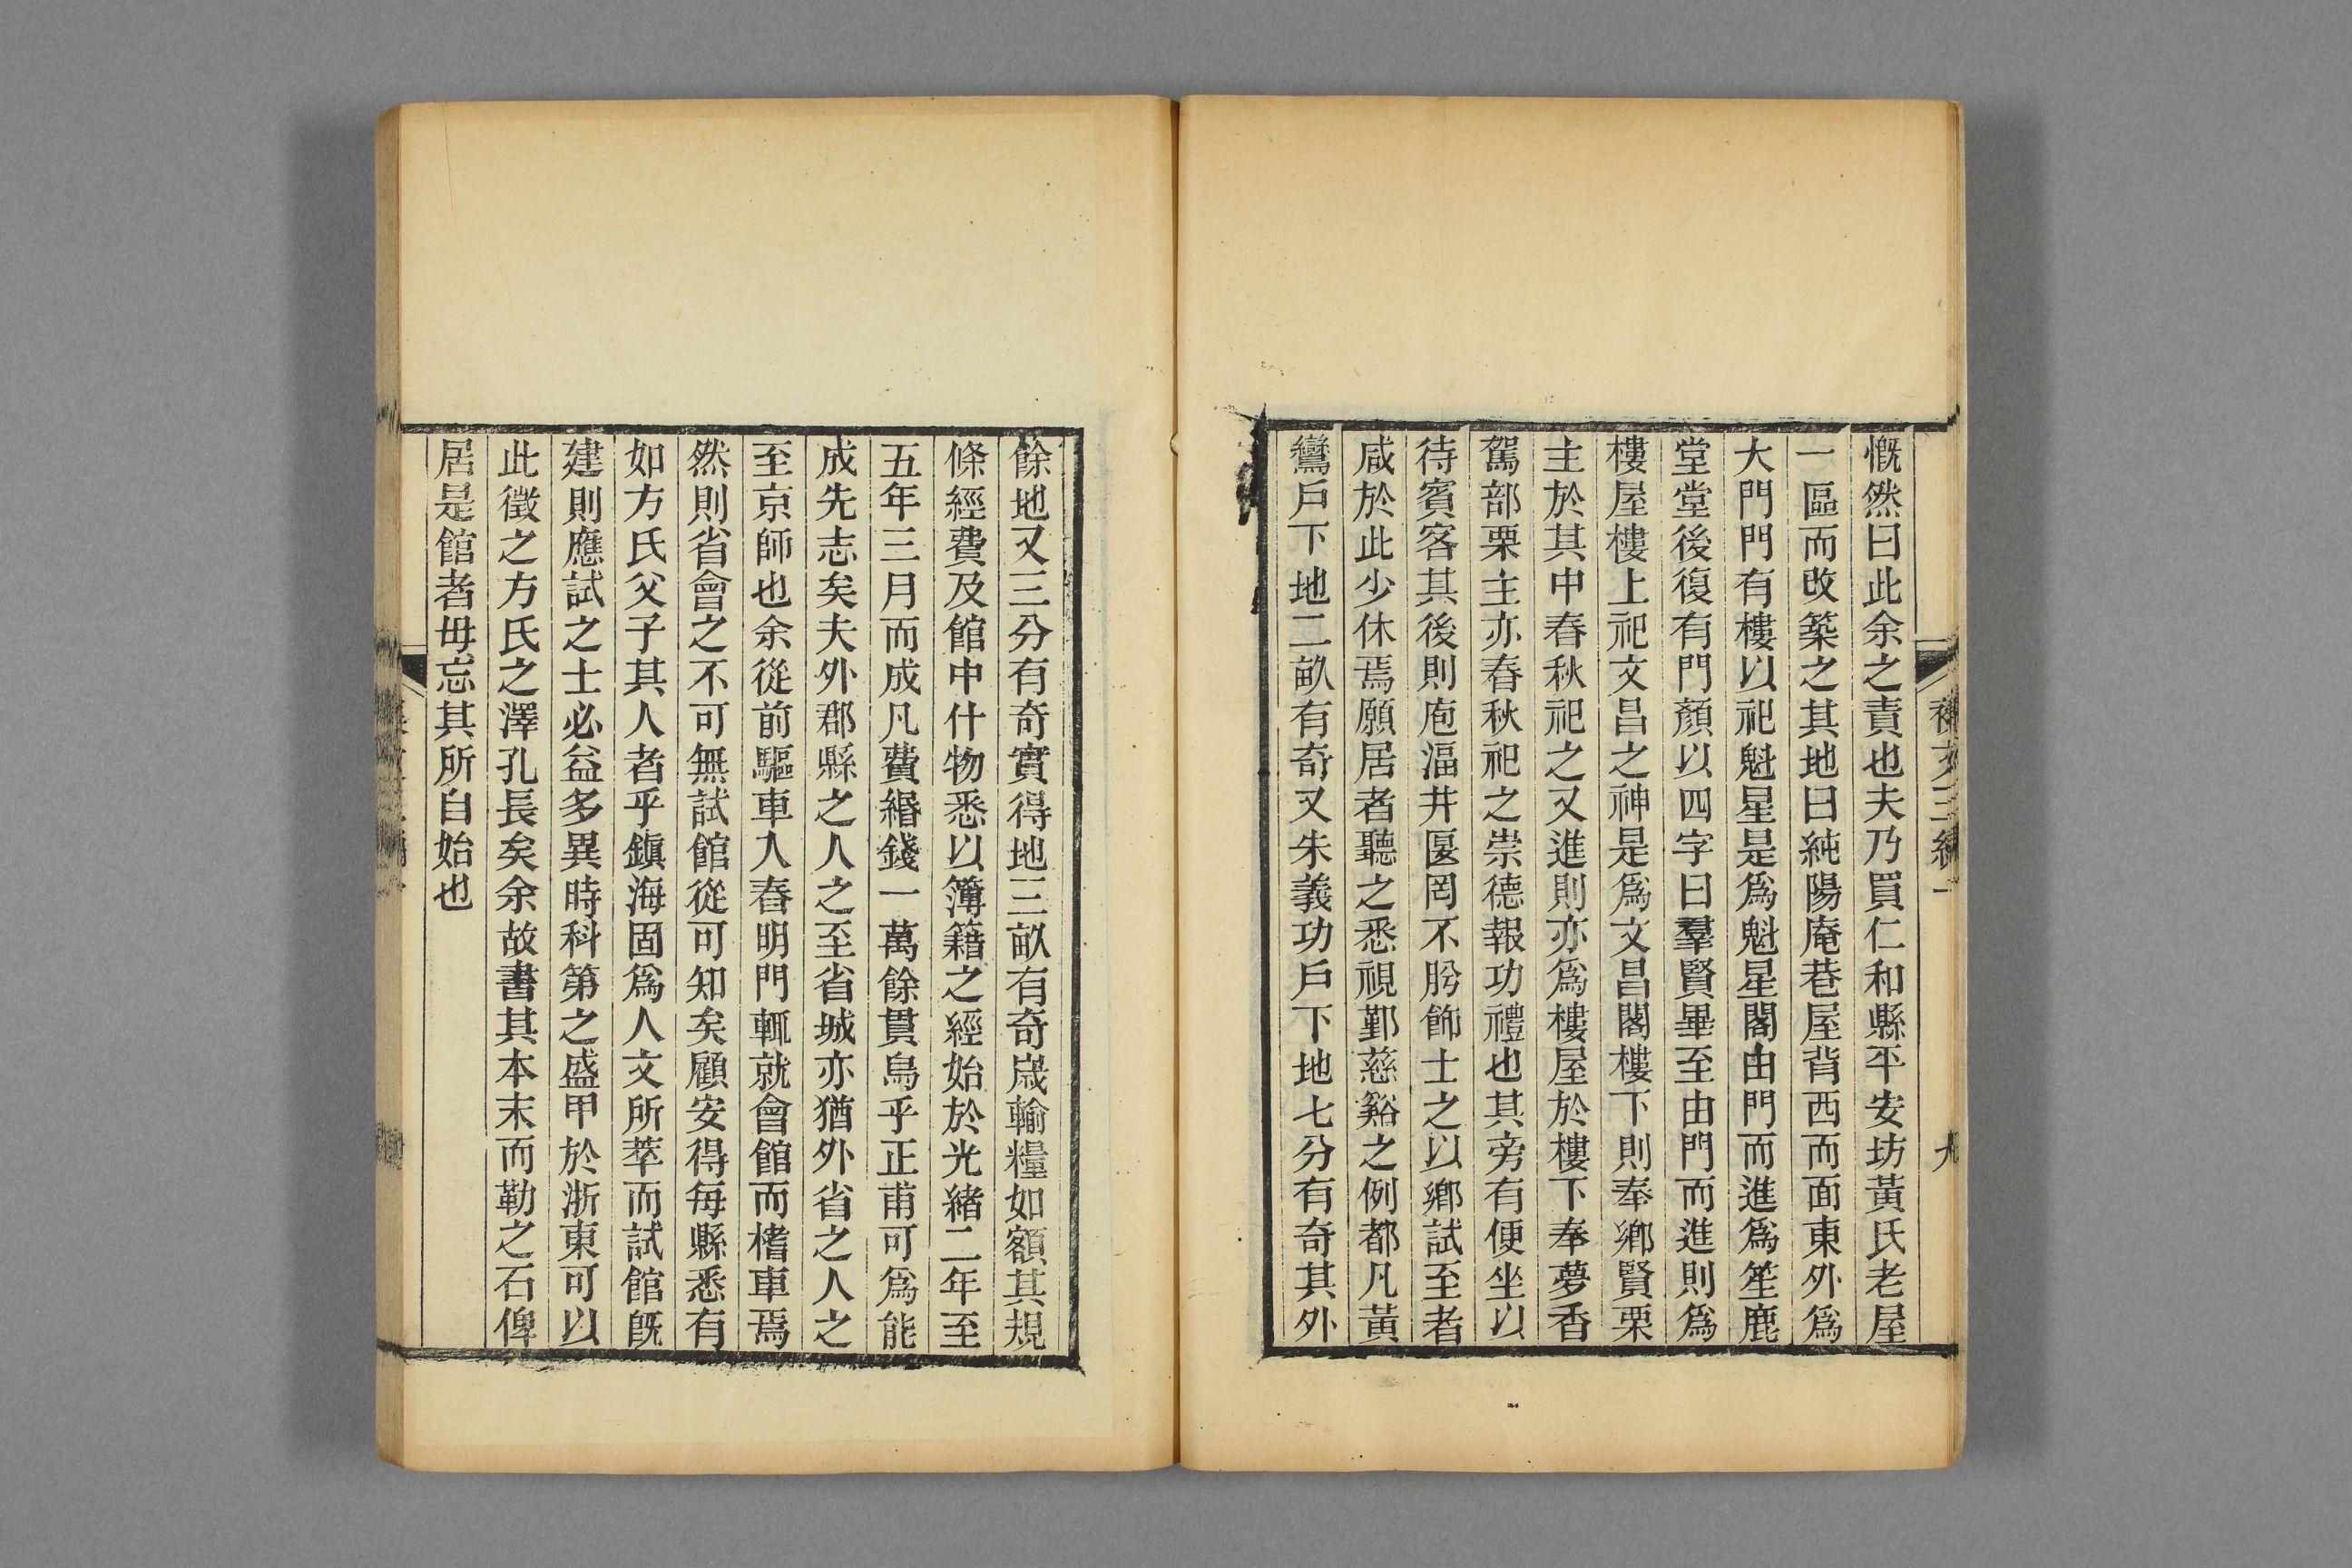 襍文三編一
九
慨然曰此余之責也夫乃買仁和縣平安坊黃氏老屋
一區而改築之其地曰純陽庵巷屋背西而面東外爲
大門門有樓以祀魁星是爲魁星閣由門而進爲笙鹿
堂堂後復有門顏以四字曰羣賢畢至由門而進則爲
樓屋樓上祀文昌之神是爲文昌閣樓下則奉鄉賢栗
主於其中春秋祀之又進則亦爲樓屋於樓下奉夢香
駕部栗主亦春秋祀之崇德報功禮也其旁有便坐以
待賓客其後則庖湢井匽罔不肹飾士之以鄉試至者
咸於此少休焉願居者聽之悉視鄞慈谿之例都凡黃
鸞戶下地二畝有奇又朱義功戶下地七分有奇其外
餘地又三分有奇實得地三畝有奇歲輸糧如額其規
條經費及館中什物悉以簿籍之經始於光緒二年至
五年三月而成凡費緡錢一萬餘貫烏乎正甫可爲能
成先志矣夫外郡縣之人之至省城亦猶外省之人之
至京師也余從前驅車入春明門輒就會館而榰車焉
然則省會之不可無試館從可知矣顧安得每縣悉有
如方氏父子其人者乎鎭海固爲人文所萃而試館旣
建則應試之士必益多異時科第之盛甲於浙東可以
此徵之方氏之澤孔長矣余故書其本末而勒之石俾
居是館者毋忘其所自始也